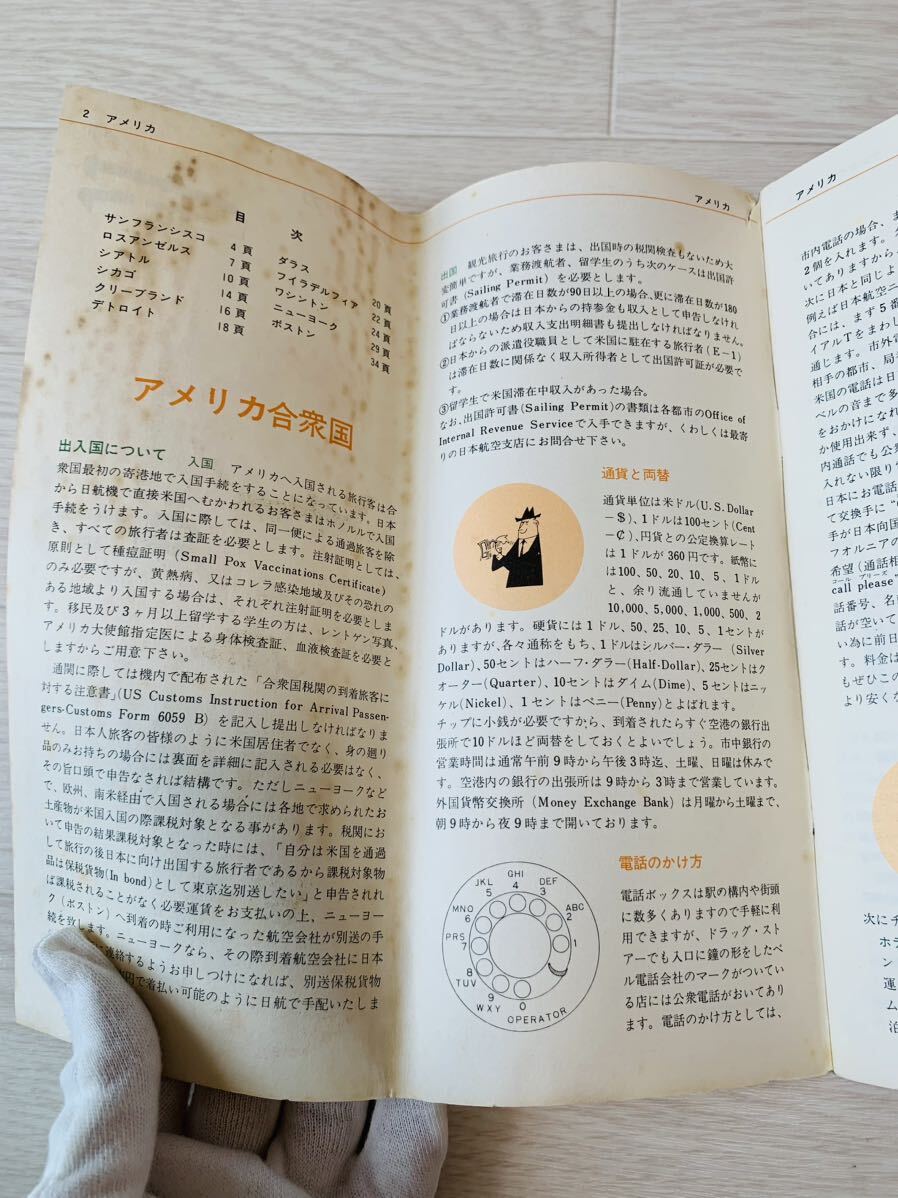 2 アメリカ
目 次
サンフランシスコ 4 頁
ロスアンゼルス 7 頁
シアトル 10 頁
シカゴ 14 頁
クリーブランド 16 頁
デトロイト 18 頁
ダラス 20 頁
フィラデルフィア 22 頁
ワシントン 24 頁
ニューヨーク 29 頁
ボストン 34 頁
アメリカ合衆国
出入国について 入国 アメリカへ入国される旅行客は合
衆国最初の寄港地で入国手続をすることになっています。日本
から日航機で直接米国へむかわれるお客さまはホノルルで入国
手続をうけます。入国に際しては、同一便による通過旅客を除
き、すべての旅行者は査証を必要とします。注射証明としては、
原則として種痘証明 (Small Pox Vaccinations Certificate)
のみ必要ですが、黄熱病、又はコレラ感染地域及びその恐れの
ある地域より入国する場合は、それぞれ注射証明を必要としま
す。移民及び3ヶ月以上留学する学生の方は、レントゲン写真、
アメリカ大使館指定医による身体検査証、血液検査証を必要と
しますからご用意下さい。
通関に際しては機内で配布された「合衆国税関の到着旅客に
対する注意書」(US Customs Instruction for Arrival Passen-
gers-Customs Form 6059 B) を記入し提出しなければなりま
せん。日本人旅客の皆様のように米国居住者でなく、身の廻り
品のみお持ちの場合には裏面を詳細に記入される必要はなく、
その旨口頭で申告なされば結構です。ただしニューヨークなど
で、欧州、南米経由で入国される場合には各地で求められたお
土産物が米国入国の際課税対象となる事があります。税関にお
いて申告の結果課税対象となった時には、「自分は米国を通過
して旅行の後日本に向け出国する旅行者であるから課税対象物
品は保税貨物(In bond)として東京迄別送したい」と申告されれ
ば課税されることがなく必要運賃をお支払いの上、ニューヨー
ク(ボストン)へ到着の時ご利用になった航空会社が別送の手
続を致します。ニューヨークなら、その際到着航空会社に日本
に連絡するようお申しつけになれば、別送保税貨物
円で着払い可能のように日航で手配いたしま
アメリカ
出国 観光旅行のお客さまは、出国時の税関検査もないため大
変簡単ですが、業務渡航者、留学生のうち次のケースは出国許
可書 (Sailing Permit) を必要とします。
①業務渡航者で滞在日数が90日以上の場合、更に滞在日数が180
日以上の場合は日本からの持参金も収入として申告しなけれ
ばならないため収入支出明細書も提出しなければなりません。
②日本からの派遣役職員として米国に駐在する旅行者(E-1)
は滞在日数に関係なく収入所得者として出国許可証が必要で
す。
③留学生で米国滞在中収入があった場合。
なお、出国許可書(Sailing Permit)の書類は各都市のOffice of
Internal Revenue Serviceで入手できますが、くわしくは最寄
りの日本航空支店にお問合せ下さい。
通貨と両替
通貨単位は米ドル(U.S.Dollar
-$)、1ドルは100セント(Cent
-₵)、円貨との公定換算レート
は1ドルが360円です。紙幣に
は100、50、20、10、5、1ドル
と、余り流通していませんが
10,000、5,000、1,000、500、2
ドルがあります。硬貨には1ドル、50、25、10、5、1セントが
ありますが、各々通称をもち、1ドルはシルバー・ダラー (Silver
Dollar)、50セントはハーフ・ダラー(Half-Dollar)、25セントはク
オーター(Quarter)、10セントはダイム(Dime)、5セントはニッ
ケル(Nickel)、1セントはペニー(Penny)とよばれます。
チップに小銭が必要ですから、到着されたらすぐ空港の銀行出
張所で10ドルほど両替をしておくとよいでしょう。市中銀行の
営業時間は通常午前9時から午後3時迄、土曜、日曜は休みで
す。空港内の銀行の出張所は9時から3時まで営業しています。
外国貨幣交換所 (Money Exchange Bank) は月曜から土曜まで、
朝9時から夜9時まで開いております。
電話のかけ方
電話ボックスは駅の構内や街頭
に数多くありますので手軽に利
用できますが、ドラッグ・スト
アーでも入口に鐘の形をしたベ
ル電話会社のマークがついてい
る店には公衆電話がおいてあり
ます。電話のかけ方としては、
ABC 2
DEF 3
GHI 4
JKL 5
MNO 6
PRS 7
TUV 8
WXY 9
OPERATOR 0
1
アメリカ
市内電話の場合、ま
2個を入れます。
いてありますから
次に日本と同じよ
例えば日本航空ニ
合には、まず5番
イアルTをまわし
通じます。市外電
相手の都市、局
米国の電話は日
ベルの音まで多
をおかけになれ
か使用出来ず、
内通話でも公衆
入れない限り
日本にお電話
て交換手に“
手が日本向国
フォルニアの
希望(通話相
コール プリーズ
call please”
話番号、名
話が空いて
い為に前日
す。料金は
もぜひこの
より安くな
次にチ
ホテ
ン
運
ム
泊